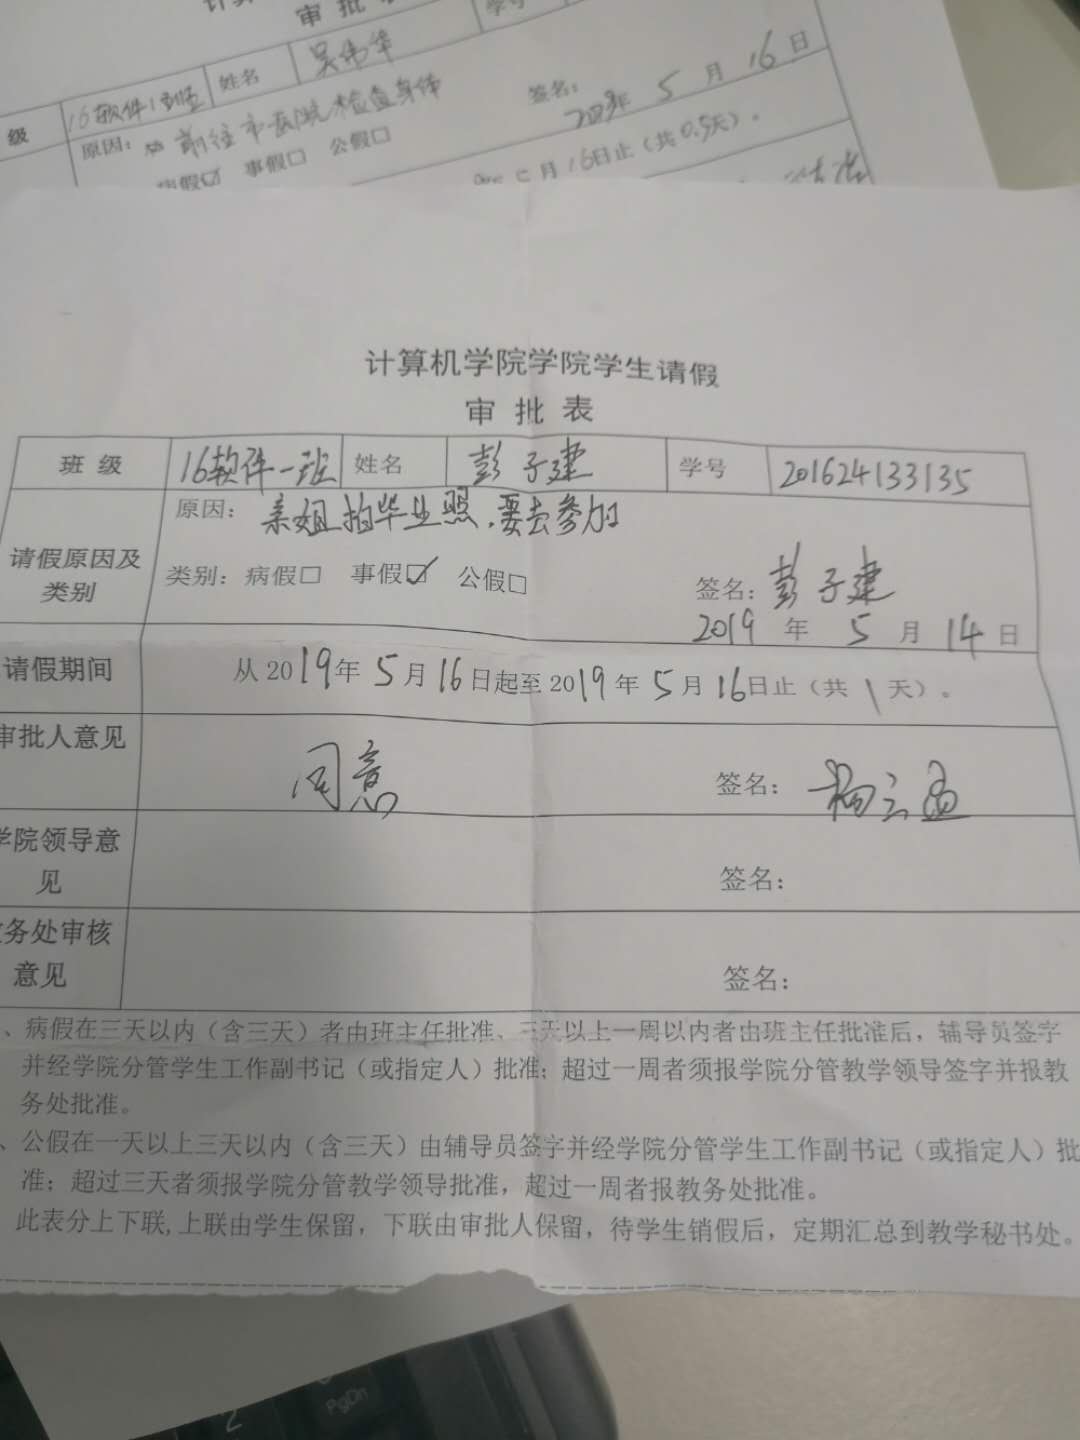 审批
级 16软件1班 姓名 吴伟华 学号
原因: 前往市医院检查身体
签名:
2019年 5 月 16 日
病假☑ 事假□ 公假□
月16日止（共0.5天）。
计算机学院学院学生请假
审 批 表
班 级 16软件一班 姓名 彭子建 学号 201624133135
原因: 亲姐拍毕业照,要去参加
请假原因及
类别
类别: 病假□ 事假☑ 公假□
签名: 彭子建
2019 年 5 月 14 日
请假期间 从 2019年 5月 16日起至 2019年 5月 16日止（共 1 天）。
审批人意见 同意 签名:
学院领导意
见
签名:
务处审核
意见
签名:
、病假在三天以内（含三天）者由班主任批准、三天以上一周以内者由班主任批准后，辅导员签字
并经学院分管学生工作副书记（或指定人）批准；超过一周者须报学院分管教学领导签字并报教
务处批准。
、公假在一天以上三天以内（含三天）由辅导员签字并经学院分管学生工作副书记（或指定人）批
准；超过三天者须报学院分管教学领导批准，超过一周者报教务处批准。
此表分上下联,上联由学生保留，下联由审批人保留，待学生销假后，定期汇总到教学秘书处。
2
PgDn